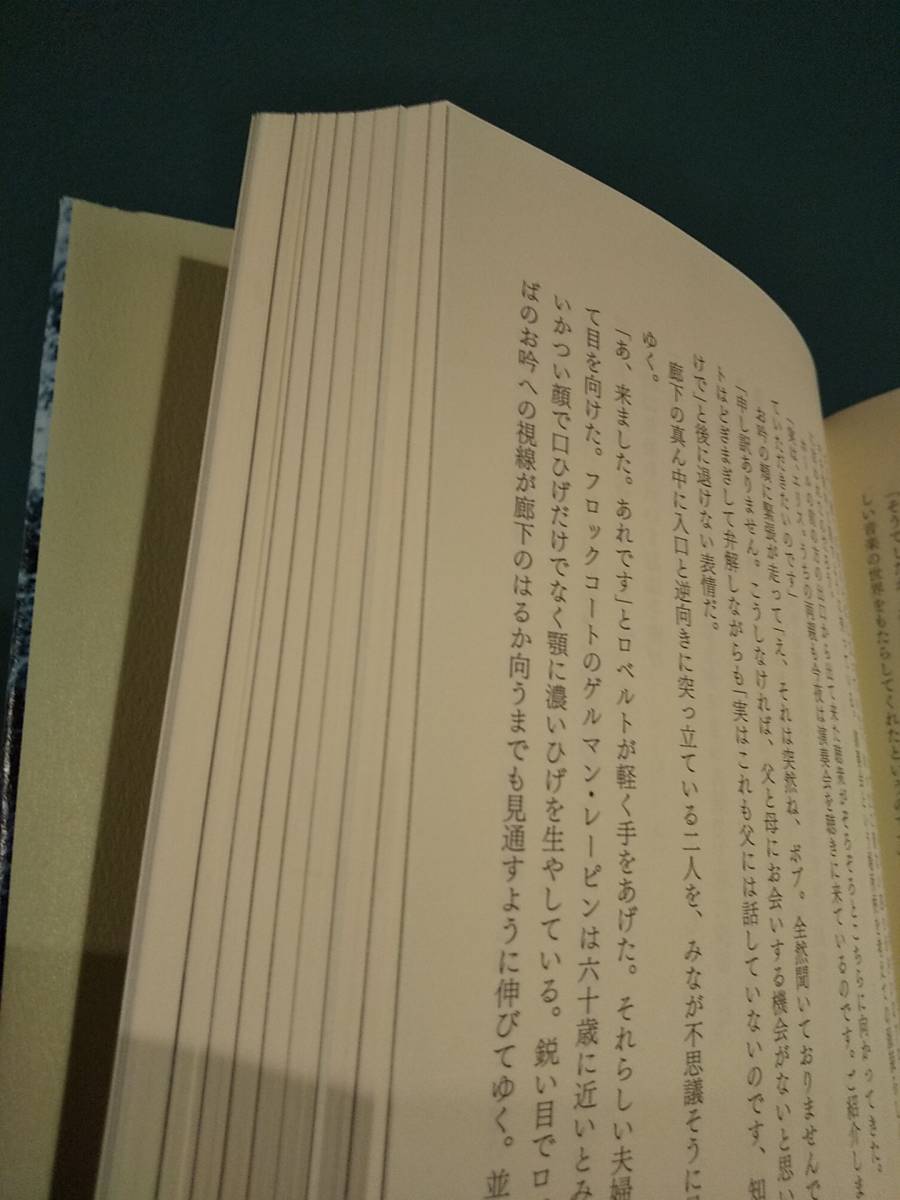 しい音楽の世界をもたらしてくれたといるので
ホールの扉の方の出口から出て来た聴衆がぞろぞろとこちらに向かってきた。
うちの両親も今夜は演奏会を聴きに来ているのです。ご紹介しま
ていただきたいのです」
お吟の頬に緊張が走って「え、それは突然ね、ボブ。全然聞いておりませんで
「申し訳ありません。こうしなければ、父と母にお会いする機会がないと思い
トはどぎまぎして弁解しながらも「実はこれも父には話していないのです、知
けで」と後に退けない表情だ。
廊下の真ん中に入口と逆向きに突っ立ている二人を、みなが不思議そうに
ゆく。
「あ、来ました。あれです」とロベルトが軽く手をあげた。それらしい夫婦
て目を向けた。フロックコートのゲルマン・レーピンは六十歳に近いとみ
いかつい顔で口ひげだけでなく顎に濃いひげを生やしている。鋭い目でロ
ばのお吟への視線が廊下のはるか向うまでも見通すように伸びてゆく。並